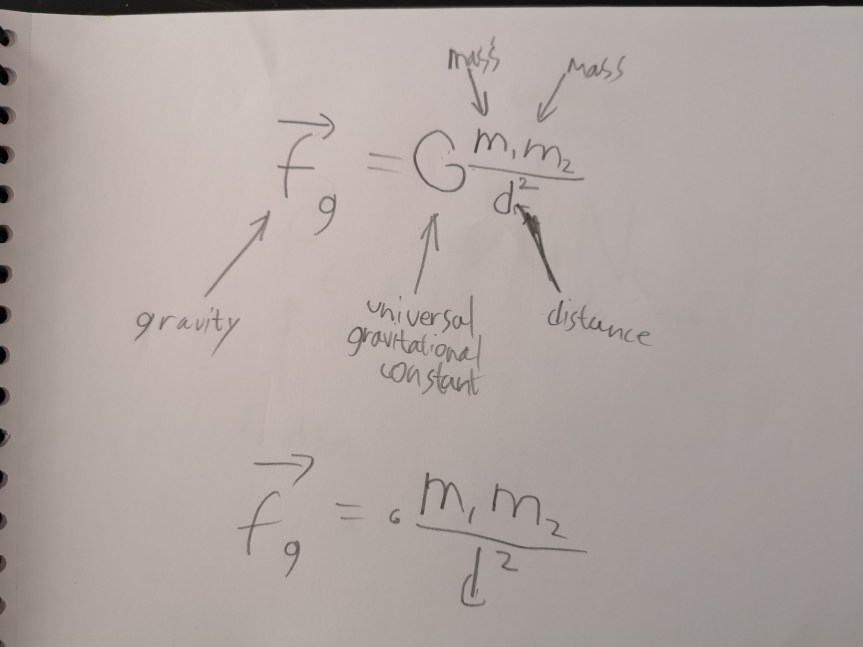 mass mass
f⃗g = G m₁m₂/d²
gravity universal gravitational constant distance
f⃗g = G m₁m₂/d²